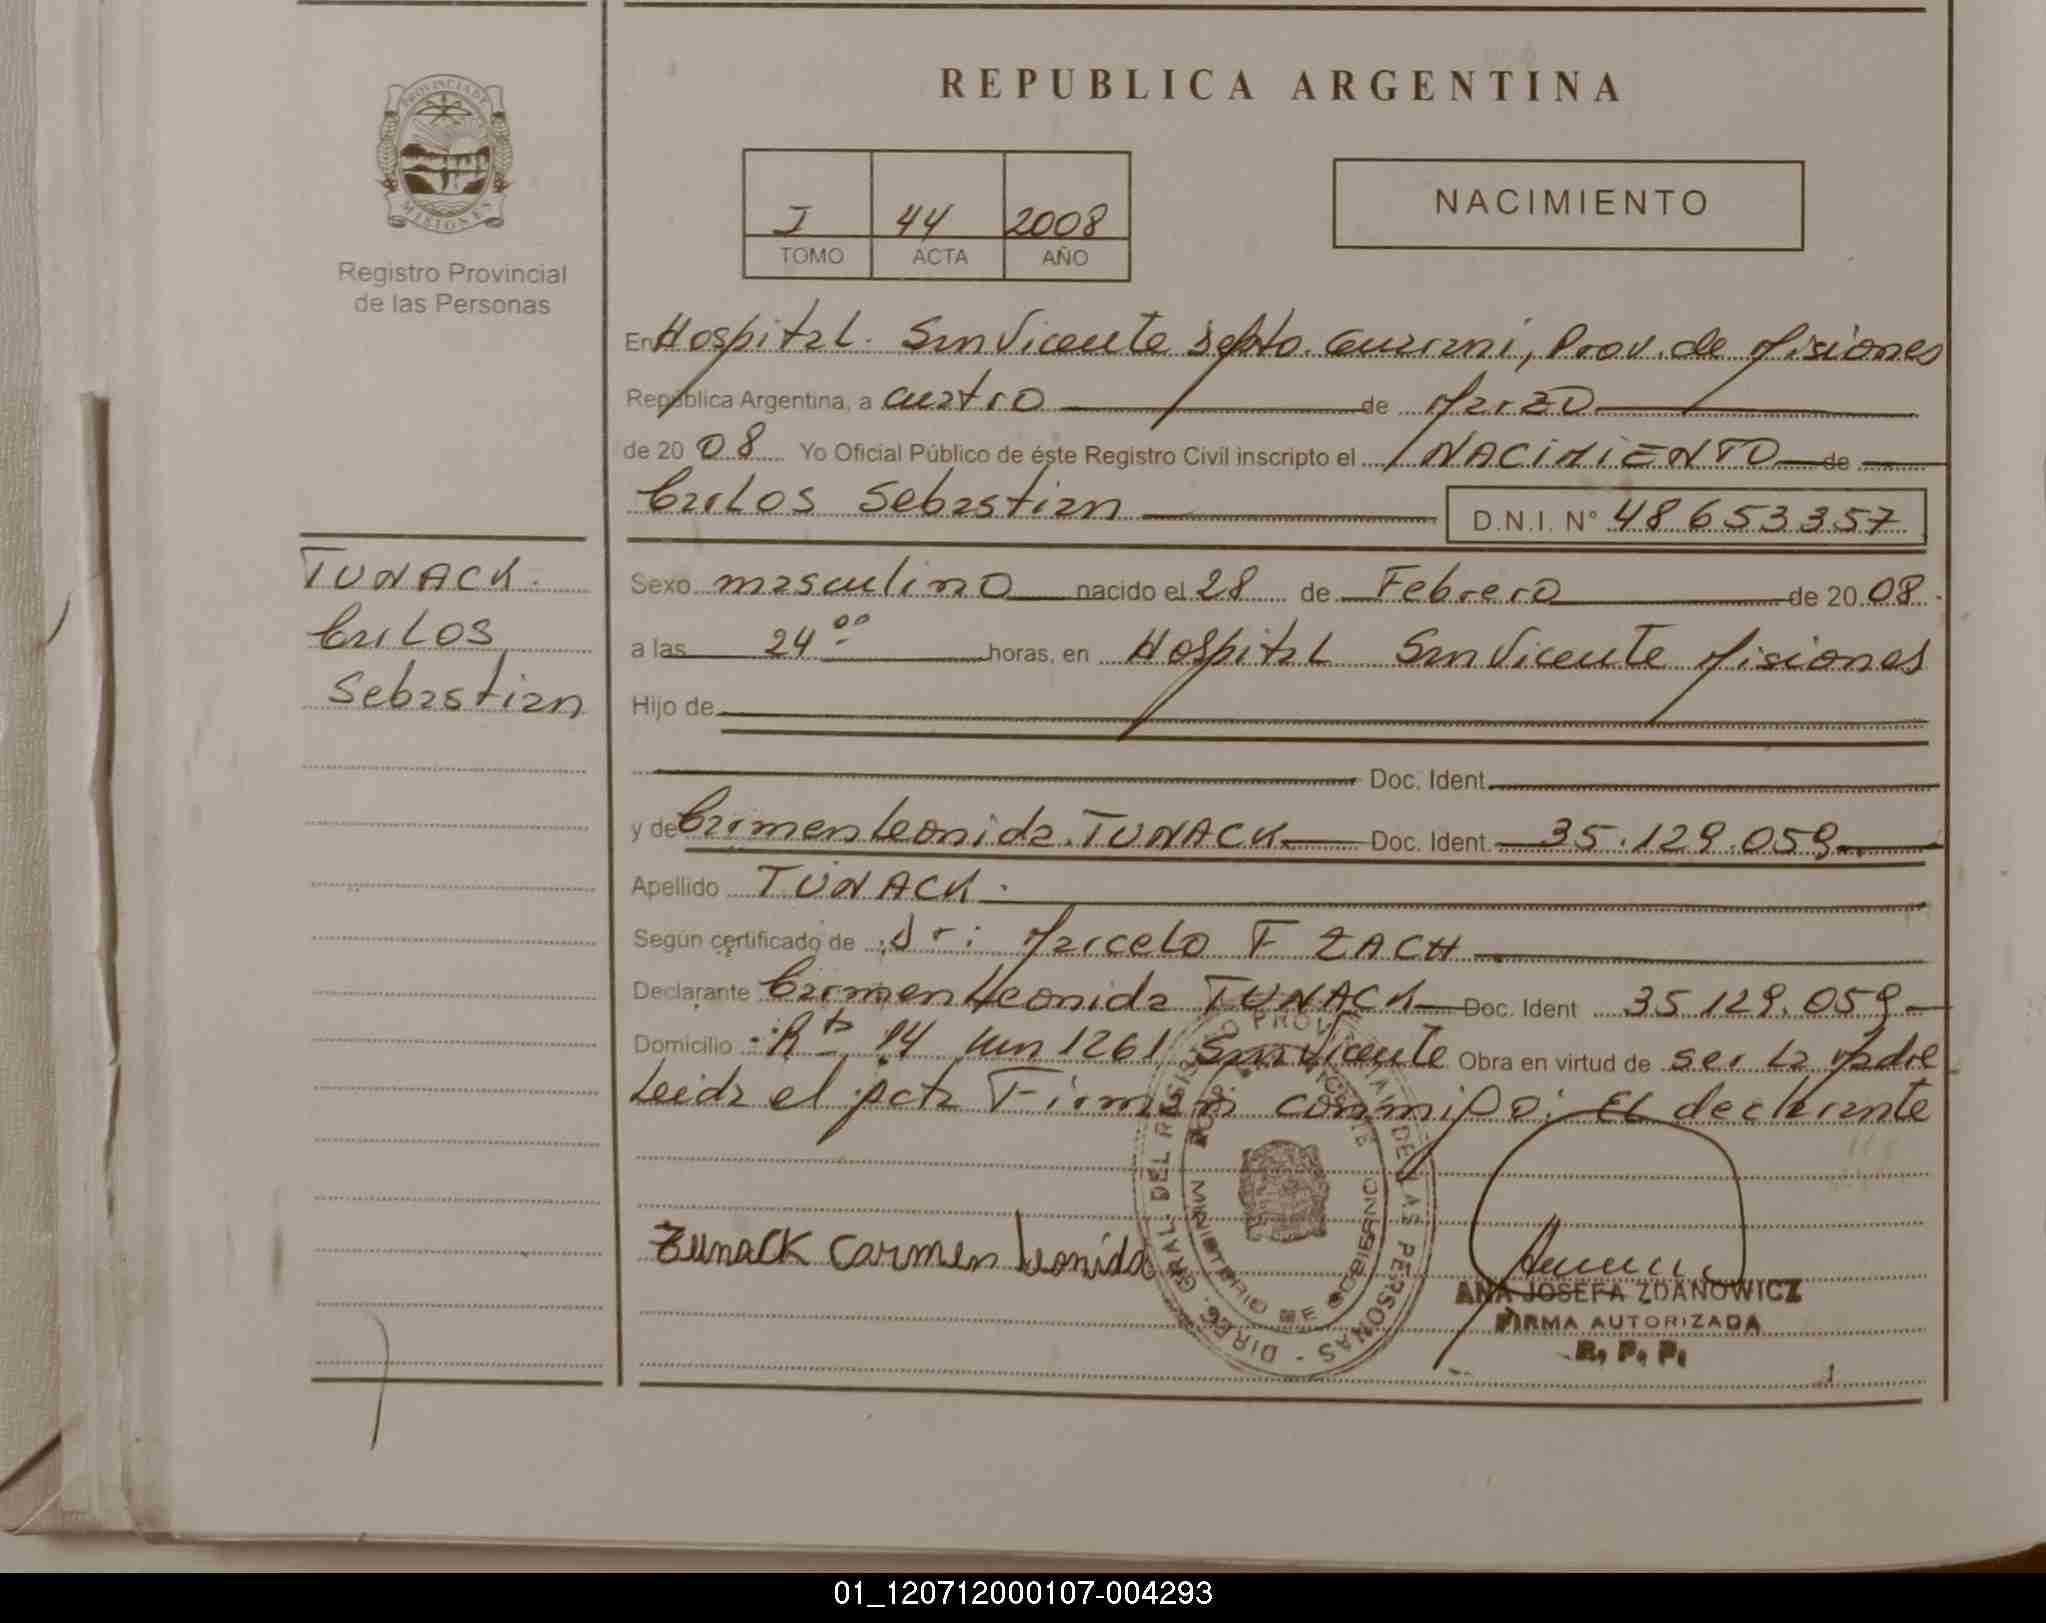 REPUBLICA ARGENTINA
PROVINCIA DE
MISIONES
Registro Provincial
de las Personas
I 44 2008
TOMO ACTA AÑO
NACIMIENTO
En Hospital. San Vicente Dpto. Guarani, Prov. de Misiones
República Argentina, a cuatro de Marzo
de 20 08 Yo Oficial Público de éste Registro Civil inscripto el NACIMIENTO de
Carlos Sebastian D.N.I. N° 48653357
TUNACK.
Carlos
Sebastian
Sexo masculino nacido el 28 de Febrero de 20 08.
a las 24 00 horas, en Hospital San Vicente Misiones
Hijo de
Doc. Ident.
y de Carmen Leonida. TUNACK Doc. Ident. 35.129.059
Apellido TUNACK.
Según certificado de Dr: Marcelo F ZACH
Declarante Carmen Leonida TUNACK Doc. Ident 35 129.059
Domicilio Rta 14 km 1261 San Vicente Obra en virtud de ser la Madre
Leida el acta Firman conmigo: El declarante
DIREC. GRAL. DEL REGISTRO PROVINCIAL DE LAS PERSONAS
MINISTERIO DE GOBIERNO
Tunack Carmen Leonida
ANA JOSEFA ZDANOWICZ
FIRMA AUTORIZADA
R. P. P.
01_120712000107-004293